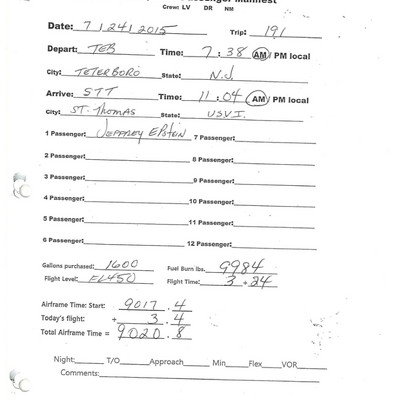 Passenger Manifest
Crew: LV DR NM
Date: 7/24/2015 Trip: 191
Depart: TEB Time: 7:38 AM/ PM local
City: TETERBORO State: N.J
Arrive: STT Time: 11:04 AM/ PM local
City: ST. THOMAS State: USVI.
1 Passenger: JEFFREY EPSTEIN 7 Passenger:
2 Passenger: 8 Passenger:
3 Passenger: 9 Passenger:
4 Passenger: 10 Passenger:
5 Passenger: 11 Passenger:
6 Passenger: 12 Passenger:
Gallons purchased: 1600 Fuel Burn lbs. 9984
Flight Level: FL450 Flight Time: 3 + 24
Airframe Time: Start: 9017.4
Today's flight: + 3.4
Total Airframe Time = 9020.8
Night: T/O Approach Min Flex VOR
Comments: